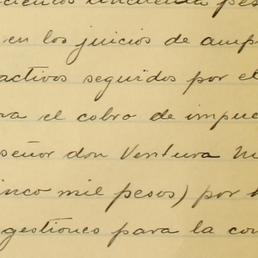 cincuenta pes
en los juicios de amp
activos seguidos por el
el cobro de impu
señor don Ventura M
inco mil pesos) por
gestiones para la con